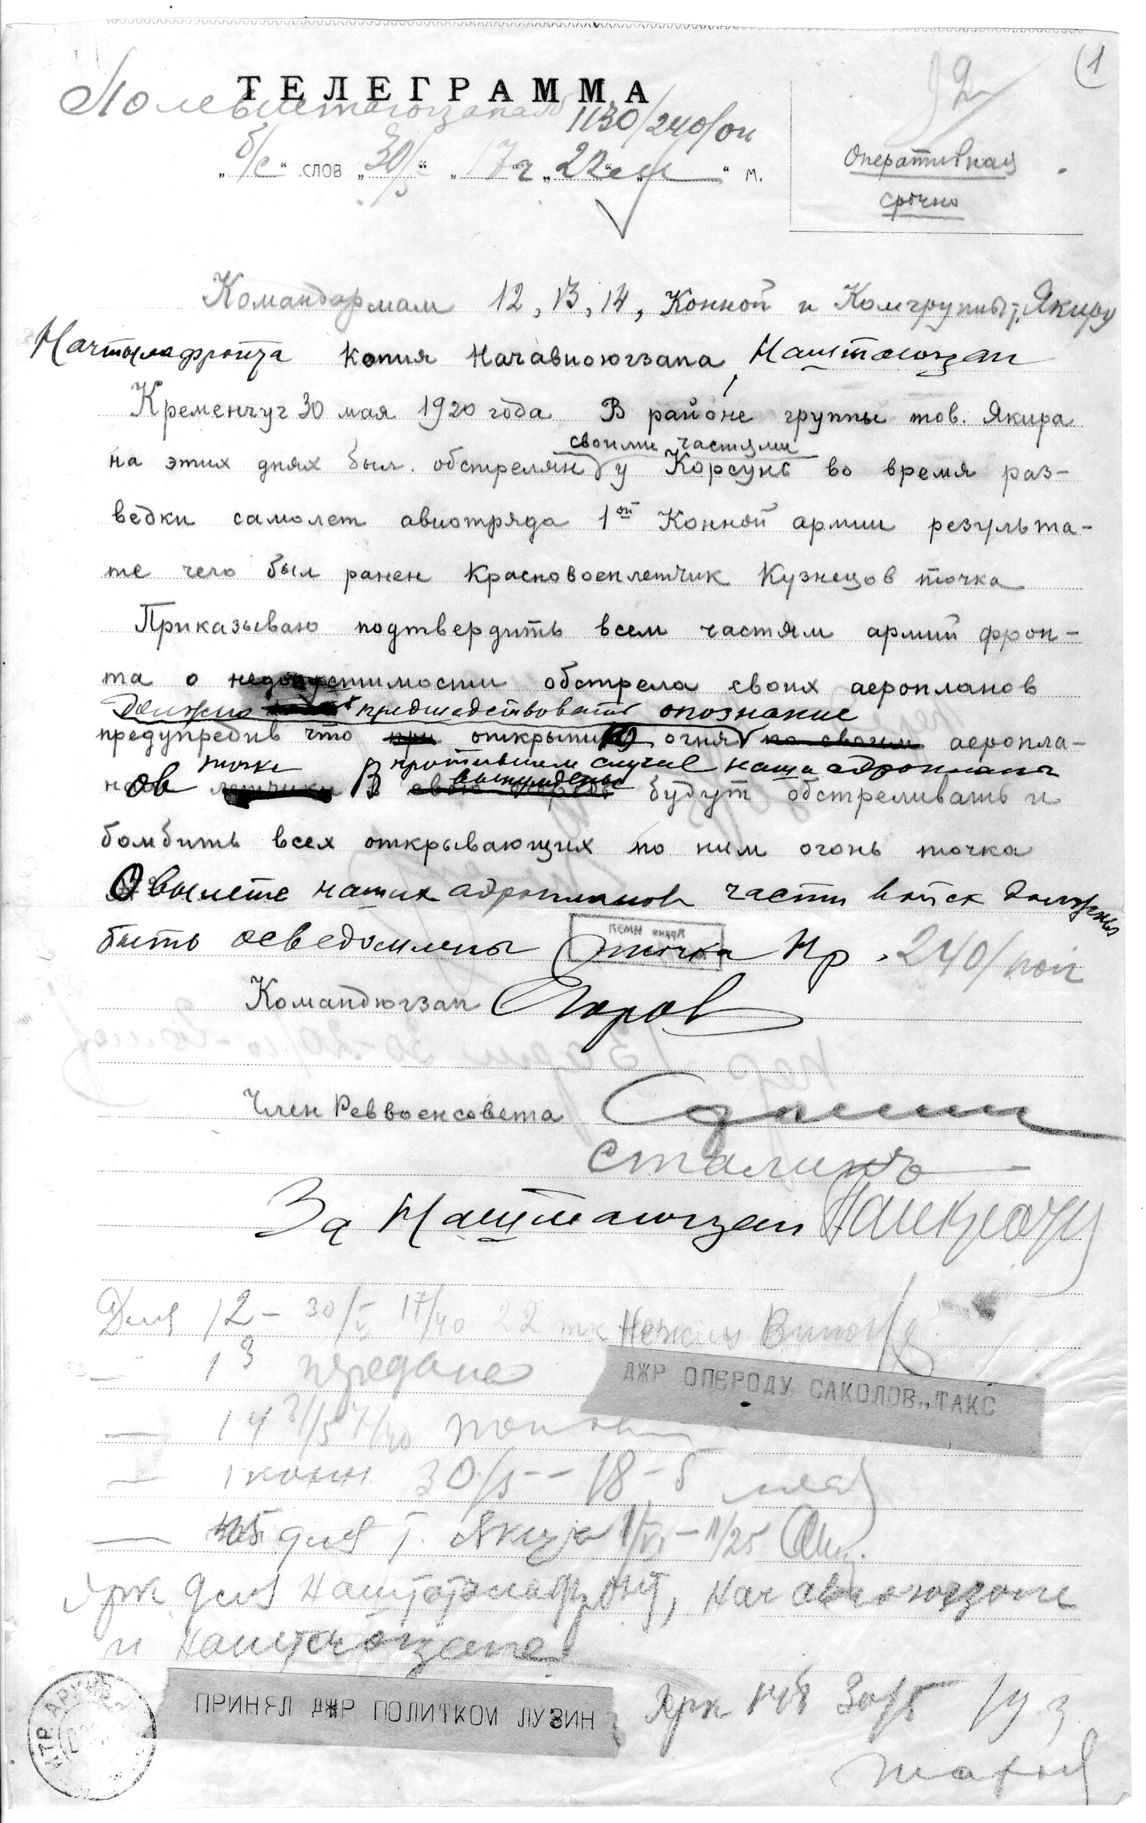 (1
92
ТЕЛЕГРАММА
1130/240/оп
"б/с" слов "30/5" "17ч" 22 м.
Оперативная
срочно
Командармам 12, 13, 14, Конной и Комгруппы т. Якиру
Начтылафронта Копия Начавиоюгзапа, Наштаюгзап
Кременчуг 30 мая 1920 года В районе группы тов. Якира
своими частями
на этих днях был обстрелян у Корсунь во время раз-
ведки самолет авиотряда 1ой Конной армии результа-
те чего был ранен Красновоенлетчик Кузнецов точка
Приказываю подтвердить всем частям армий фрон-
та о недопустимости обстрела своих аеропланов
Должно предшедствовать опознание
предупредив что при открытию огня по своим аеропла-
точка В противном случае наши аэропланы
нов летчики В вынуждены будут обстреливать и
бомбить всех открывающих по ним огонь точка
О вылете наших аэропланов части войск должны
быть осведомлены точка Нр. 240/поп
Командюгзап Егоров
Член Реввоенсовета Сталин
Сталинъ
За Наштаюгзап Панкрац
Для 12 – 30/V 17/40 22 тк Нежин
– 13 передана
– 14 31/5
– 1 конн 30/5 – 18 – 5
– для Г. Якира 1/VI – 11/25
ДЖР ОПЕРОДУ САКОЛОВ.,ТАКС
для Наштатылафронт, Начавиоюгзапе
и Наштаюгзапе
ПРИНЯЛ ДЖР ПОЛИТКОМ ЛУЗИН
30/5